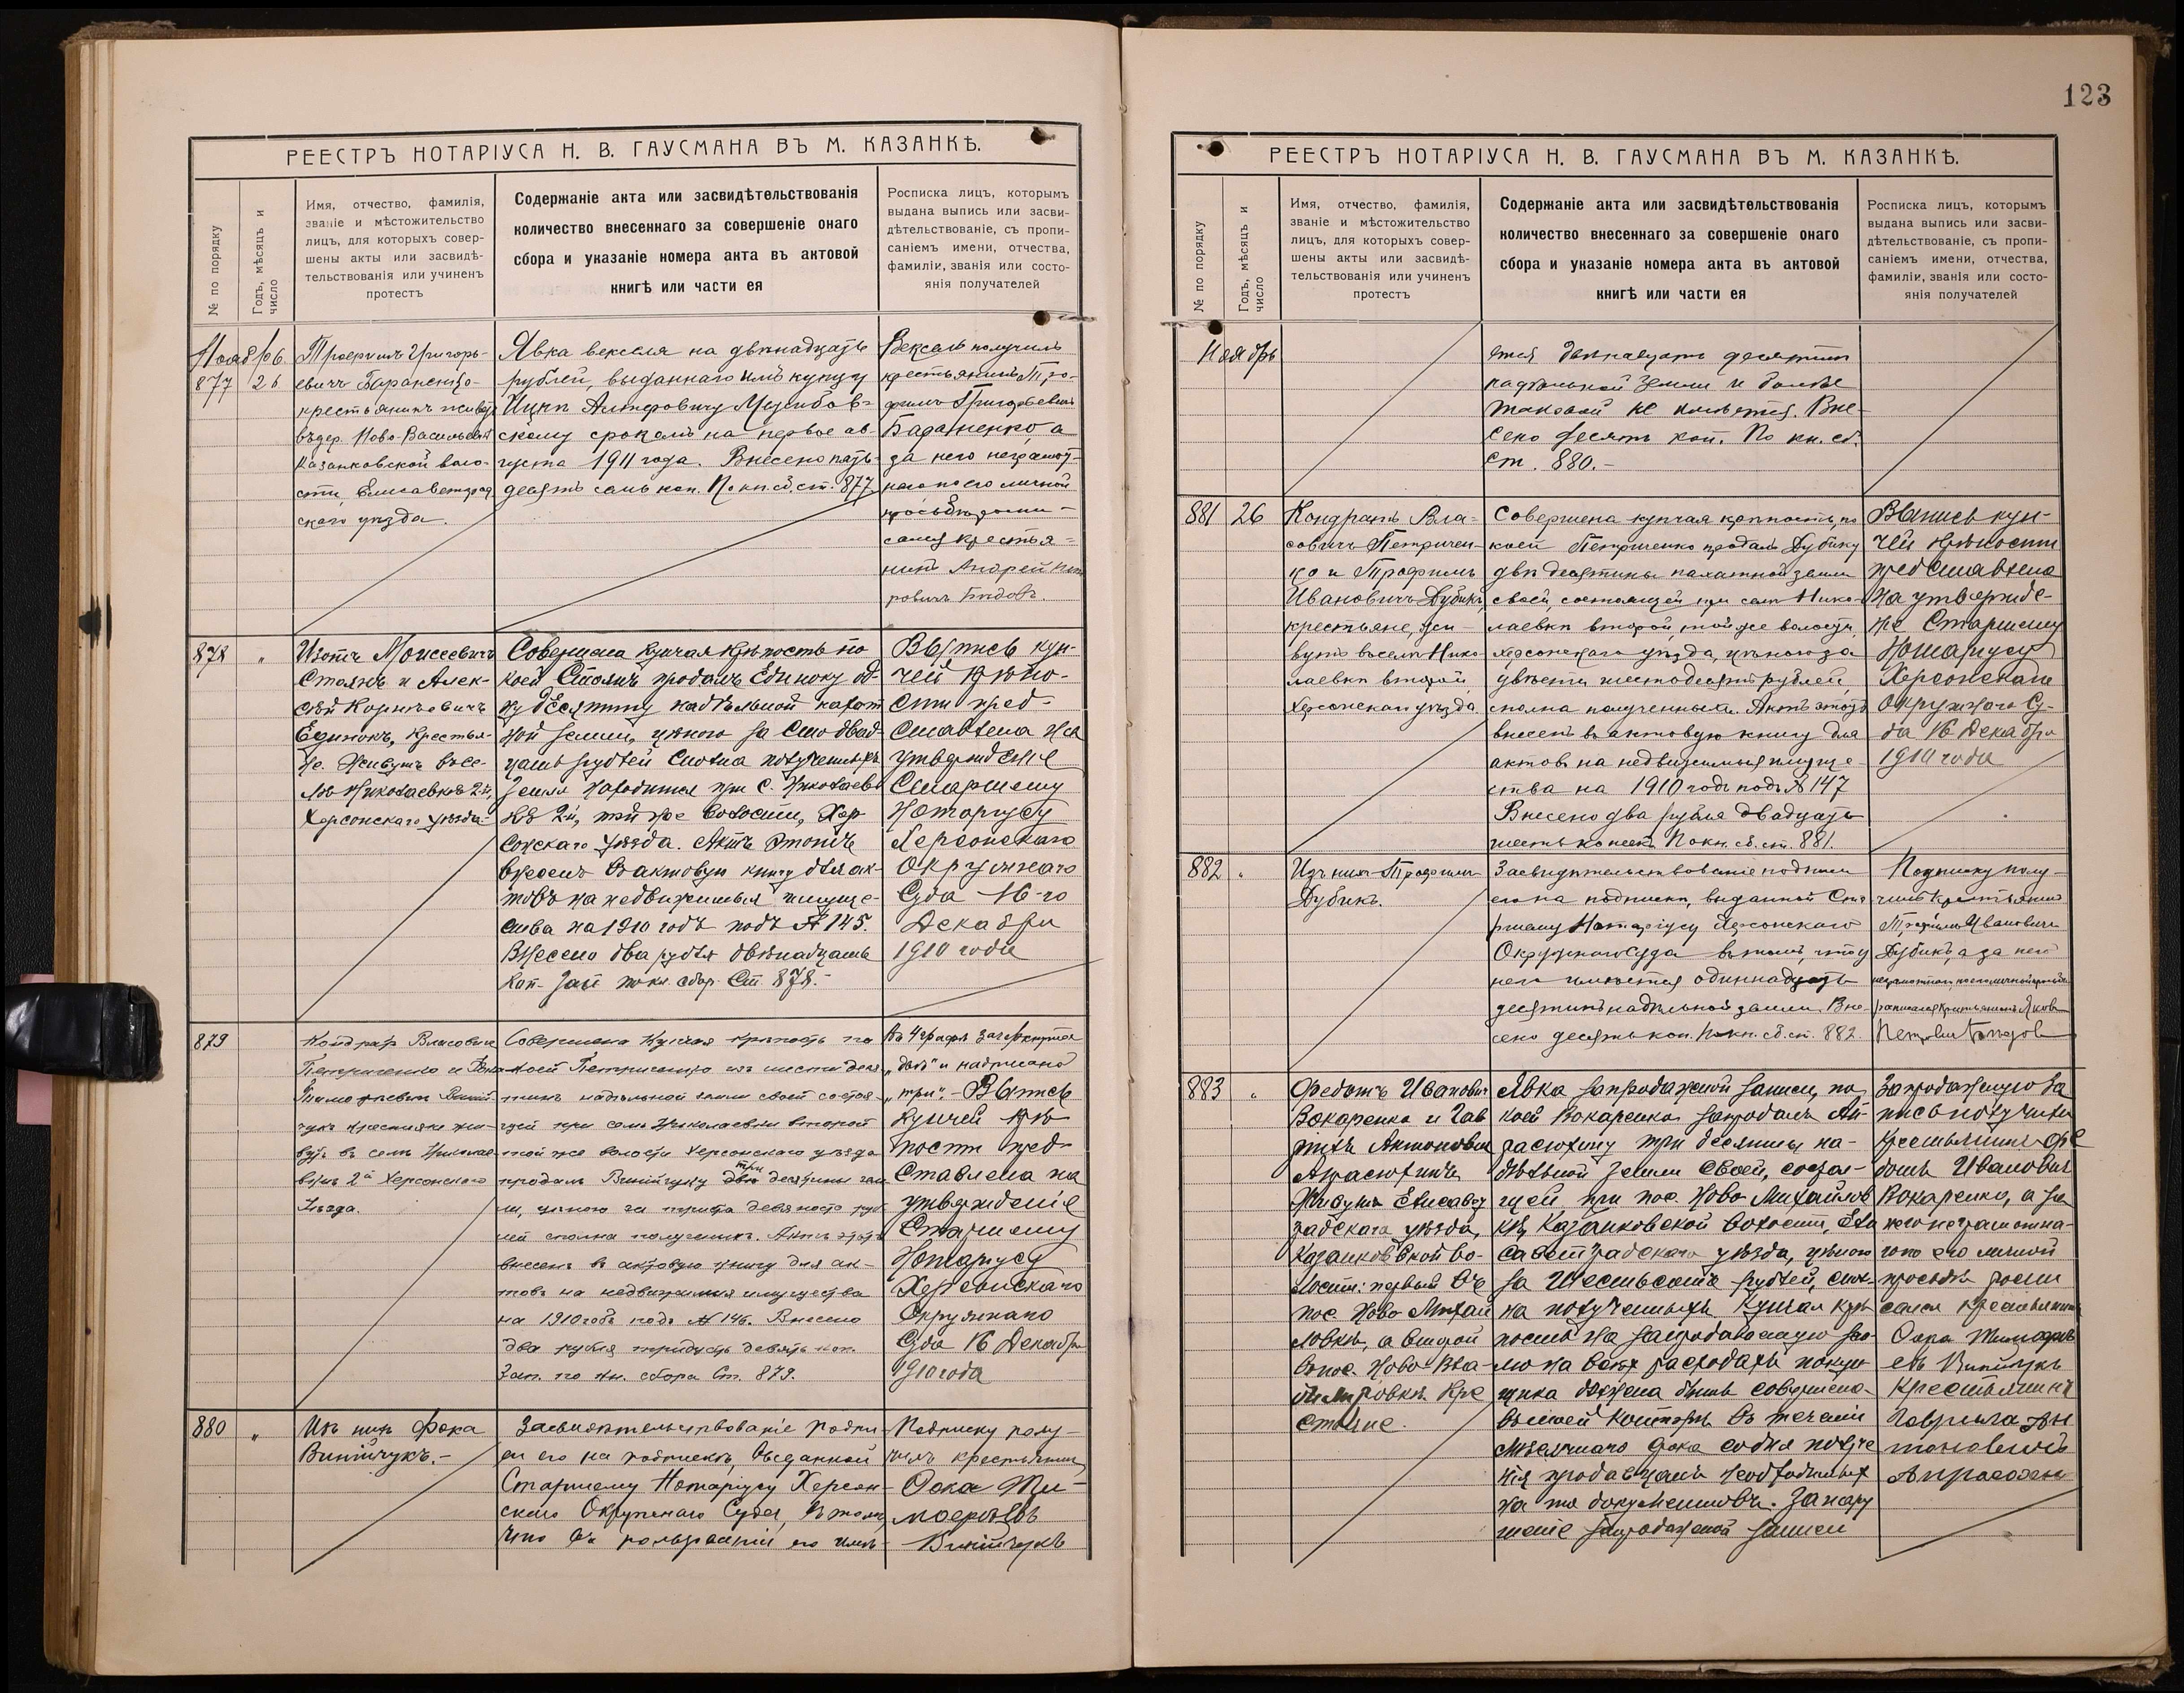 123
РЕЕСТРЪ НОТАРІУСА Н. В. ГАУСМАНА ВЪ М. КАЗАНКѢ.
№ по порядку
Годъ, мѣсяцъ и число
Имя, отчество, фамилія,
званіе и мѣстожительство
лицъ, для которыхъ совер-
шены акты или засвидѣ-
тельствованія или учиненъ
протестъ
Содержаніе акта или засвидѣтельствованія
количество внесеннаго за совершеніе онаго
сбора и указаніе номера акта въ актовой
книгѣ или части ея
Росписка лицъ, которымъ
выдана выпись или засви-
дѣтельствованіе, съ пропи-
саніемъ имени, отчества,
фамиліи, званія или состо-
янія получателей
877 26
Григорь-
евичъ
крестьянинъ
въ дер. Ново-
Казанковской воло-
сти, Елисаветград
скаго уѣзда.
Явка векселя на двѣнадцать
рублей, выданнаго имъ купцу
скому срокомъ на первое ав-
густа 1911 года. Внесено пять-
десятъ семь коп. По кн. сб. ст. 877
Вексель получилъ
крестьянинъ Тро-
фимъ Григорьевичъ
а
за него неграмот-
наго по его личной
просьбѣ роспи-
сался крестья-
нинъ Андрей
878 "
Изотъ Моисеевичъ
Стоянъ и Алек-
сѣй Корнѣевичъ
Единокъ, крестья-
не. Живутъ въ се-
лѣ Николаевкѣ 2й,
Херсонскаго уѣзда.
Совершена купчая крѣпость по
коей Стоянъ продалъ Единоку од-
ну десятину надѣльной пахот
ной земли, цѣною за сто двад-
цать рублей сполна полученныхъ
Земля находится при с. Николаев
кѣ 2й, той же волости, Хер-
сонскаго уѣзда. Актъ этотъ
внесенъ въ актовую книгу для ак-
товъ на недвижимыя имуще-
ства на 1910 годъ подъ № 145.
Внесено два рубля двѣнадцать
коп. Зап. по кн. сбор. Ст. 878.-
Выпись куп-
чей крѣпо-
сти пред-
ставлена на
утвержденіе
Старшему
Нотаріусу
Херсонскаго
Окружнаго
Суда 16-го
Декабря
1910 года
879
Кондратъ Власовичъ
Петриченко и Фока
Тимофеевичъ Виний-
чукъ крестьяне жи-
вутъ въ селѣ Николае
вкѣ 2й Херсонскаго
Уѣзда.
Совершена Купчая крѣпость по
коей Петриченко изъ шести деся
тинъ надѣльной земли своей состоя-
щей при селѣ Николаевкѣ второй
той же волости Херсонскаго уѣзда
три
продалъ Винийчуку двѣ десятины зем
ли, цѣною за триста девяносто руб
лей сполна полученныхъ. Актъ этотъ
внесенъ въ актовую книгу для ак-
товъ на недвижимыя имущества
на 1910 годъ подъ № 146. Внесено
два рубля тридцать девять коп.
Зап. по кн. сбора Ст. 879.
Въ 4 графѣ зачеркнуто
„двѣ" и надписано
„три".- Выпись
Купчей крѣ
пости пред-
ставлена на
утвержденіе
Старшему
Нотаріусу
Херсонскаго
Окружнаго
Суда 16 Декабря
1910 года
880 "
Изъ нихъ Фока
Винийчукъ.-
Засвидѣтельствованіе подпи-
си его на подпискѣ, выданной
Старшему Нотаріусу Херсон-
скаго Окружнаго Суда, въ томъ,
что въ пользованіи его имѣ-
Подписку полу-
чилъ крестьянинъ
Фока Ти-
мофеевъ
Винийчукъ
РЕЕСТРЪ НОТАРІУСА Н. В. ГАУСМАНА ВЪ М. КАЗАНКѢ.
№ по порядку
Годъ, мѣсяцъ и число
Имя, отчество, фамилія,
званіе и мѣстожительство
лицъ, для которыхъ совер-
шены акты или засвидѣ-
тельствованія или учиненъ
протестъ
Содержаніе акта или засвидѣтельствованія
количество внесеннаго за совершеніе онаго
сбора и указаніе номера акта въ актовой
книгѣ или части ея
Росписка лицъ, которымъ
выдана выпись или засви-
дѣтельствованіе, съ пропи-
саніемъ имени, отчества,
фамиліи, званія или состо-
янія получателей
Ноябрь
ется двѣнадцать десятинъ
надѣльной земли и болѣе
таковой не имѣется. Вне-
сено десять коп. По кн. сб.
ст. 880.-
881 26
Кондратъ Вла-
совичъ Петричен-
ко и Трофимъ
Ивановичъ Дубикъ,
крестьяне, жи-
вутъ въ селѣ Нико
лаевкѣ второй
Херсонскаго уѣзда.
Совершена купчая крѣпость, по
коей Петриченко продалъ Дубику
двѣ десятины пахатной земли
своей, состоящей при селѣ Нико-
лаевкѣ второй, той же волости,
Херсонскаго уѣзда, цѣною за
двѣсти шестьдесятъ рублей,
сполна полученныхъ. Актъ этотъ
внесенъ въ актовую книгу для
актовъ на недвижимыя имуще-
ства на 1910 годъ подъ № 147
Внесено два рубля двадцать
шесть копеекъ. По кн. сб. ст. 881.
Выпись куп-
чей крѣпости
представлена
на утвержде-
ніе Старшему
Нотаріусу
Херсонскаго
Окружного Су-
да 16 Декабря
1910 года
882 "
Изъ нихъ Трофимъ
Дубикъ.
Засвидѣтельствованіе подписи
его на подпискѣ, выданной Ста
ршему Нотаріусу Херсонскаго
Окружнаго Суда въ томъ, что у
него имѣется одиннадцать
десятинъ надѣльной земли. Вне-
сено десять коп. По кн. сб. ст. 882.
Подписку полу-
чилъ крестьянинъ
Трофимъ Ивановичъ
Дубикъ, а за него
неграмотнаго по его личной просьбѣ
росписался крестьянинъ Яковъ
883 "
Федотъ Ивановичъ
Вокаренко и Гав
рилъ Антоновичъ
Апрасюхинъ
Живутъ Елисавет
градскаго уѣзда,
Казанковской во-
лости: первый въ
пос. Ново Михай
ловкѣ, а второй
въ пос. Ново-Вла-
димировкѣ. Кре
стьяне.
Явка запродажной записи, по
коей Вокаренко запродалъ Ап-
расюхину три десятины на-
дѣльной земли своей, состоя-
щей при пос. Ново Михайлов
кѣ, Казанковской волости, Ели
саветградскаго уѣзда, цѣною
за шестьсотъ рублей, спол-
на полученныхъ. Купчая крѣ
пость на запродаваемую зем-
лю на всѣхъ расходахъ покуп
щика должна быть совершена
въ моей конторѣ въ теченіи
мѣсячнаго срока со дня получе
нія продавцомъ необходимыхъ
на то документовъ. За нару
шеніе запродажной записи
Запродажную за
пись получилъ
крестьянинъ Фе
дотъ Ивановичъ
Вокаренко, а за
него неграмотна-
го по его личной
просьбѣ роспи
сался крестьянинъ
Фока Тимофе
евъ Винийчукъ
Крестьянинъ
Гаврила Ан
тоновичъ